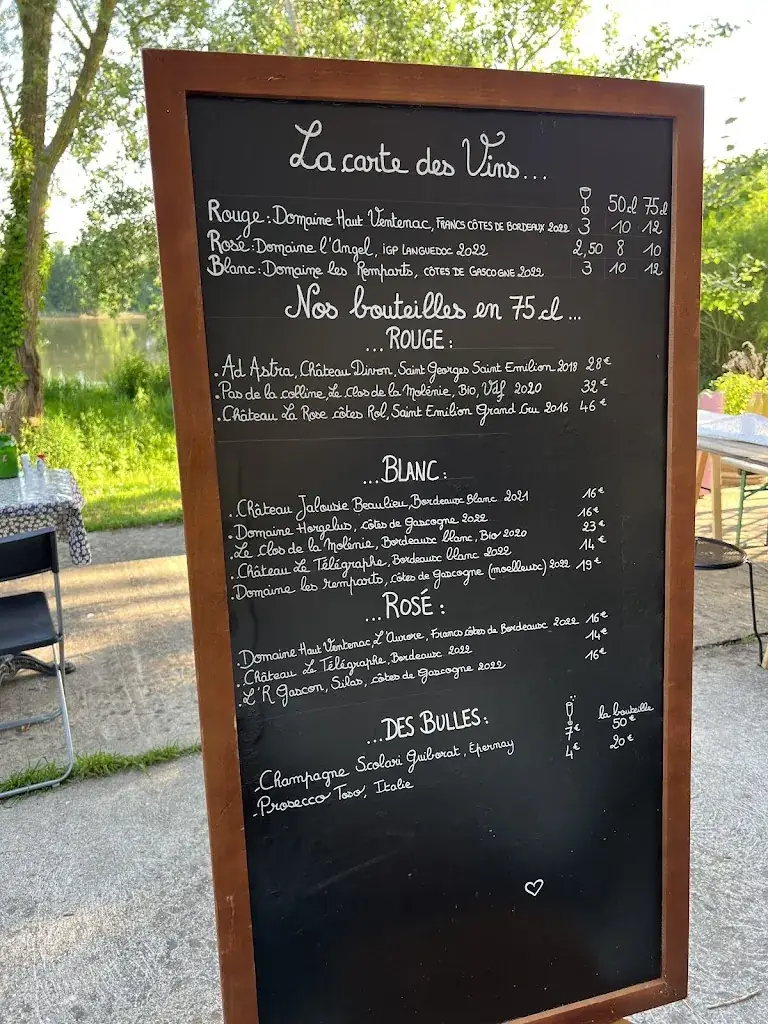 La carte des Vins...
50cl 75cl
Rouge: Domaine Haut Ventenac, FRANCS CÔTES DE BORDEAUX 2022 3 10 12
Rosé: Domaine l'Angel, IGP LANGUEDOC 2022 2,50 8 10
Blanc: Domaine les Remparts, CÔTES DE GASCOGNE 2022 3 10 12
Nos bouteilles en 75 cl...
...ROUGE:
.Ad Astra, Château Divon, Saint Georges Saint Emilion 2018 28€
.Pas de la colline, Le Clos de la Molénie, Bio, Vdf 2020 32€
.Château La Rose côtes Rol, Saint Emilion Grand Cru 2016 46€
...BLANC:
.Château Jalousie Beaulieu, Bordeaux Blanc 2021 16€
.Domaine Horgelus, côtes de Gascogne 2022 16€
.Le Clos de la Molénie, Bordeaux blanc, Bio 2020 23€
.Château Le Télégraphe, Bordeaux blanc 2022 14€
.Domaine les remparts, côtes de Gascogne (moelleux) 2022 19€
...ROSÉ:
.Domaine Haut Ventenac, L'Aurore, Francs côtes de Bordeaux 2022 16€
.Château Le Télégraphe, Bordeaux 2022 14€
.L'R Gascon, Silas, côtes de Gascogne 2022 16€
...DES BULLES:
la bouteille
-Champagne Scolari Guiborat, Epernay 7€ 50€
-Prosecco Toso, Italie 4€ 20€